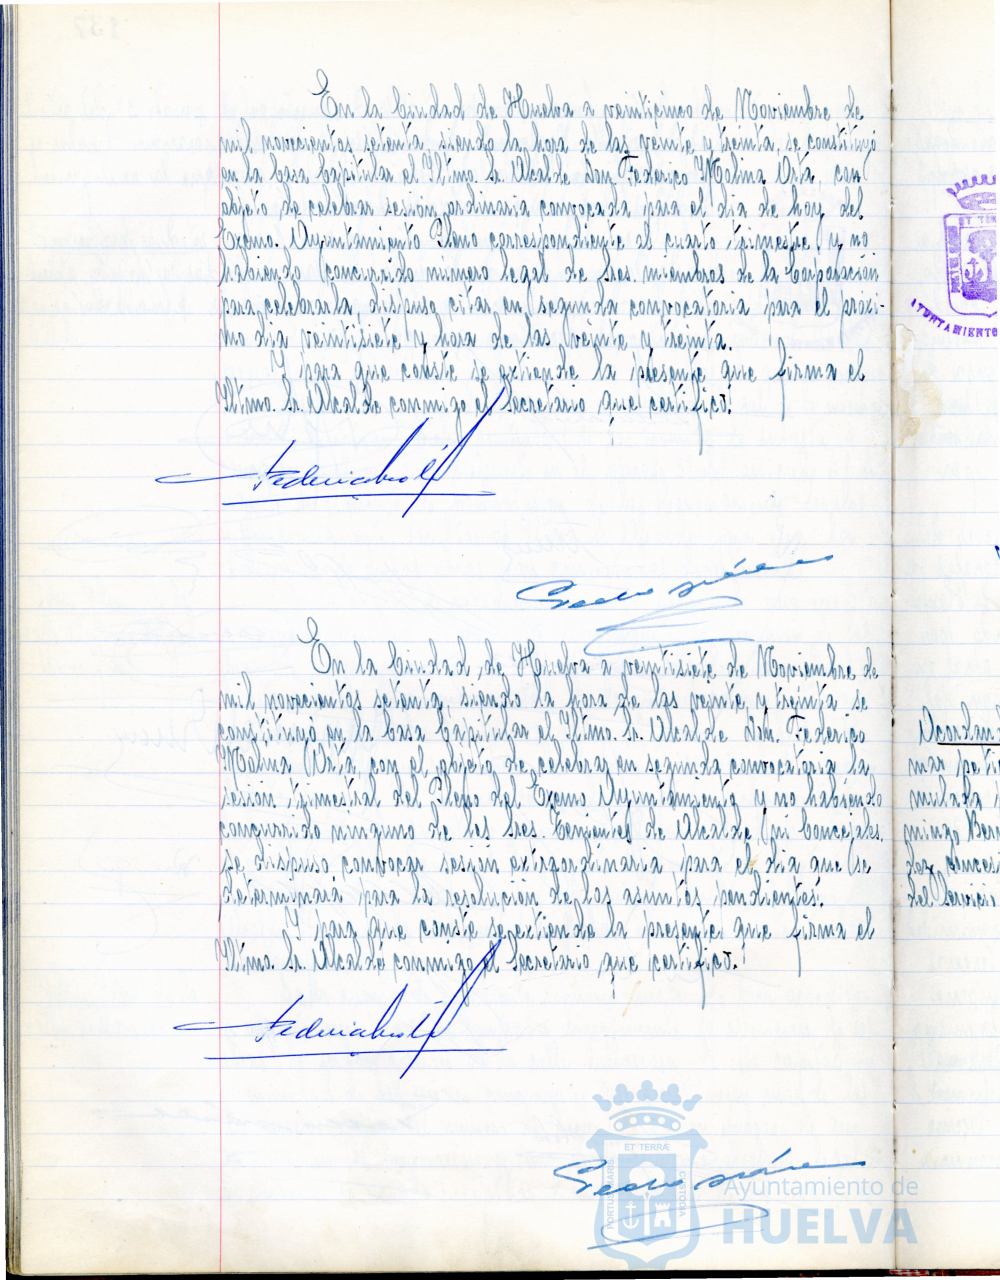 En la Ciudad de Huelva a veinticinco de Noviembre de
mil novecientos setenta, siendo la hora de las veinte y treinta, se constituyó
en la Casa Capitular el Iltmo. Sr. Alcalde don Federico Molina Orta, con
objeto de celebrar sesión ordinaria convocada para el día de hoy del
Excmo. Ayuntamiento Pleno correspondiente al cuarto trimestre y no
habiendo concurrido número legal de Sres. miembros de la Corporación
para celebrarla, dispuso citar en segunda convocatoria para el próxi-
mo día veintisiete y hora de las veinte y treinta.
Y para que conste se extiende la presente que firma el
Iltmo. Sr. Alcalde conmigo el Secretario que certifico.
En la Ciudad de Huelva a veintisiete de Noviembre de
mil novecientos setenta, siendo la hora de las veinte y treinta se
constituyó en la Casa Capitular el Iltmo. Sr. Alcalde don Federico
Molina Orta, con el objeto de celebrar en segunda convocatoria la
sesión trimestral del Pleno del Excmo Ayuntamiento y no habiendo
concurrido ninguno de los Sres. Tenientes de Alcalde, ni Concejales,
se dispuso convocar sesión extraordinaria para el día que se
determinará para la resolución de los asuntos pendientes.
Y para que conste se extiende la presente que firma el
Iltmo. Sr. Alcalde conmigo el Secretario que certifico.
ET TERRÆ
PORTUS MARIS
CUSTODIA
Ayuntamiento de
HUELVA
AYUNTAMIENTO
mar
mulada
del Servicio